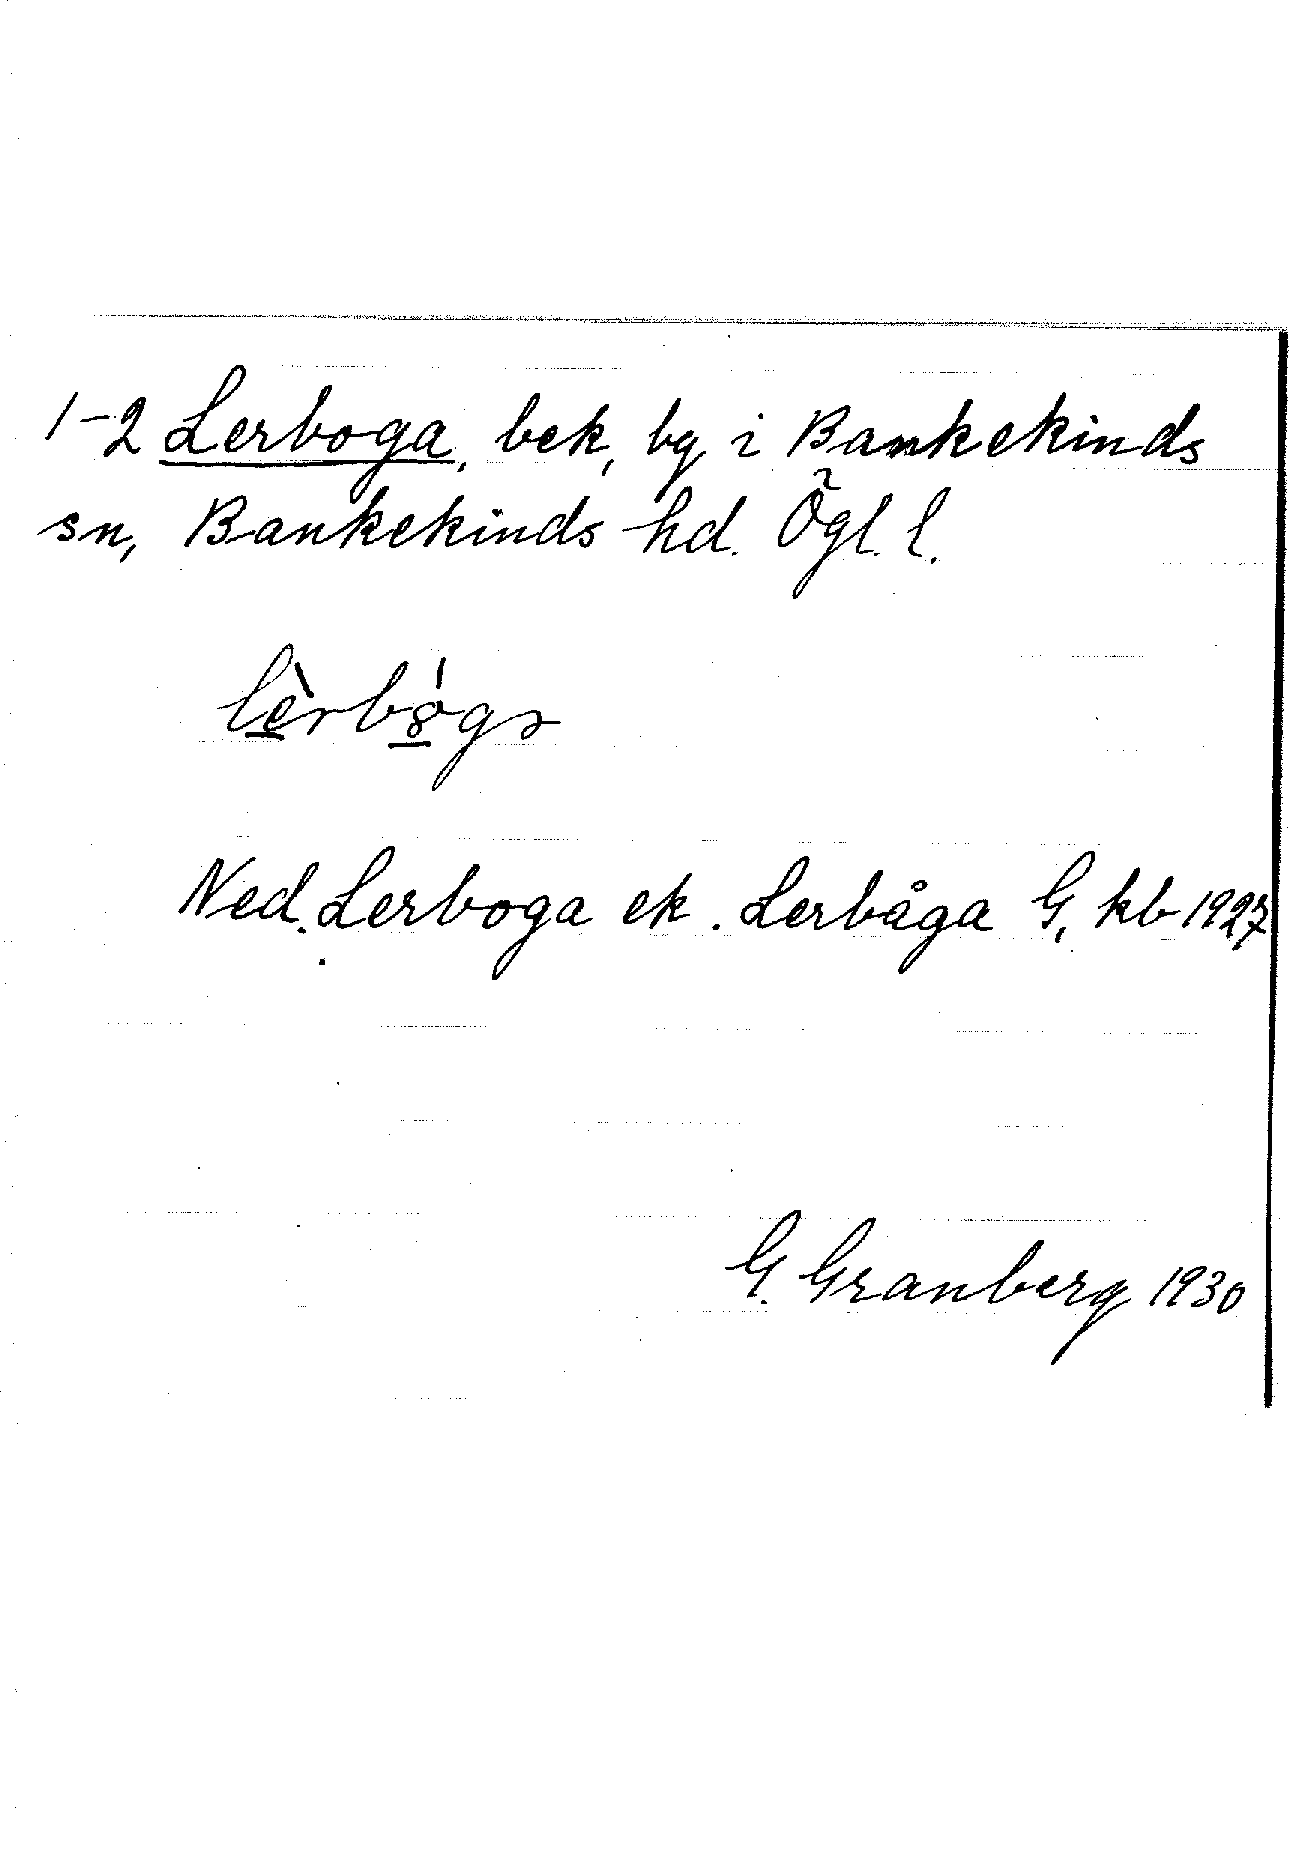 1-2 Lerboga, bek, bg i Bankekinds
sn, Bankekinds hd. Ögl. l.
Ned. Lerboga ek. Lerbåga G, kb 1927
G. Granberg 1930